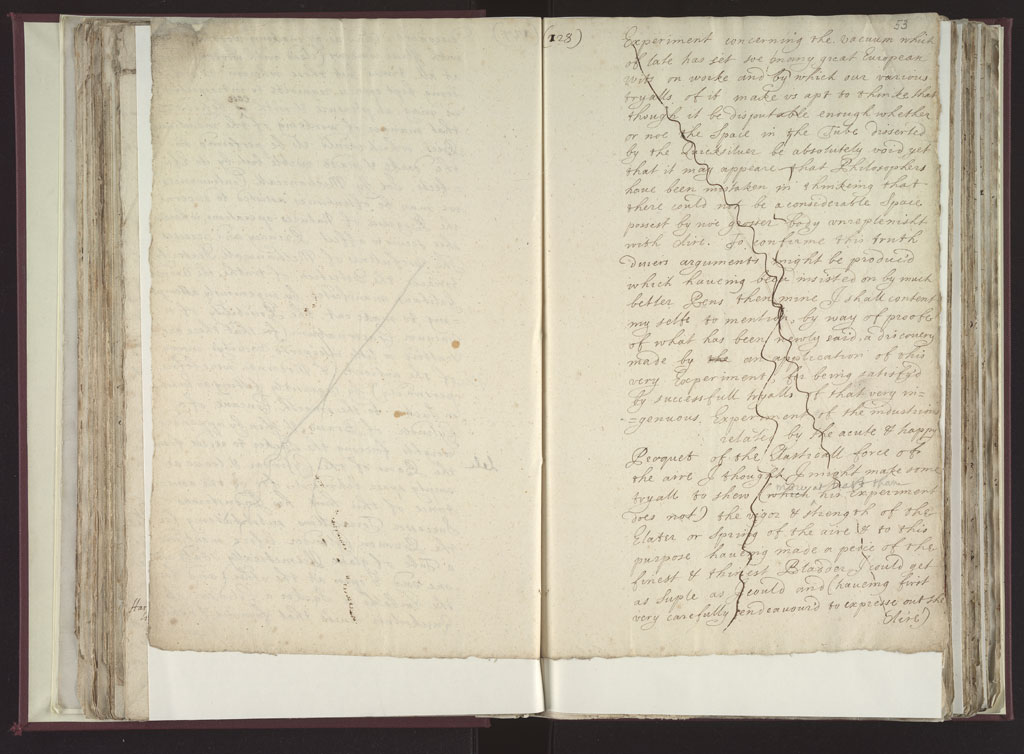 (128)
53
Experiment concerning the vacuum which
of late has set soe many great European
wits on worke and by which our various
tryalls of it make us apt to thinke that
though it be disputable enough whether
or noe the Space in the Tube disserted
by the Quicksilver be absolutely void yet
that it may appeare that Philosophers
have been mistaken in thinkeing that
there could not be a considerable Space
possest by noe grosser body unreplenisht
with Aire. To confirme this truth
divers arguments might be produc'd
which haveing been insisted on by much
better Pens then mine I shall content
my selfe to mention, by way of proofe
of what has been newly said, a discovery
made by the an application of this
very Experiment, for being satisfi'd
by successfull tryalls of that very in=
=genuous Experiment of the industrious
related by the acute & happy
Pecquet of the Elasticall force of
the aire I thought I might make some
tryall to shew (which his Experiment
does not) the vigor & strength of the
Elater or Spring of the aire & to this
purpose haveing made a peice of the
finest & thinest Bladder I could get
as suple as I could and (haveing first
very carefully endeavour'd to expresse out the
Aire)